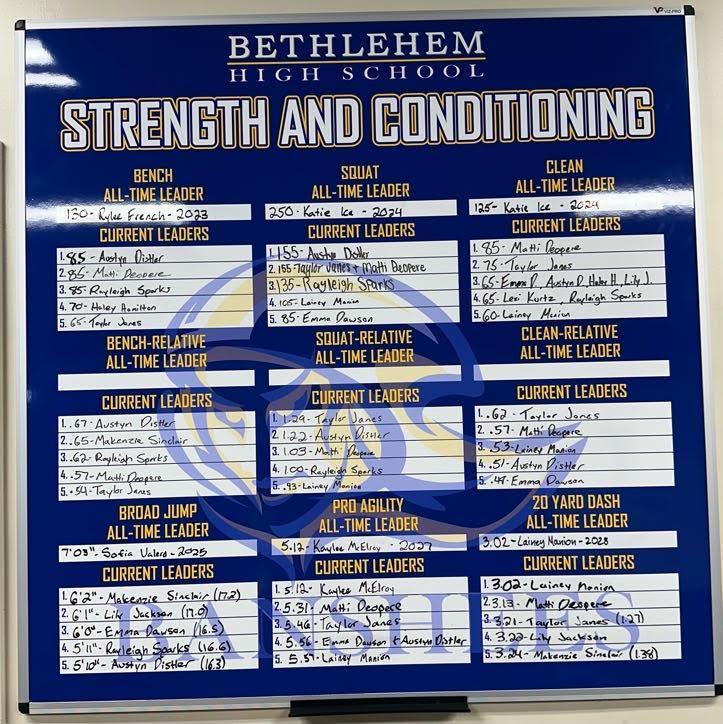 VIZ-PRO
BETHLEHEM
HIGH SCHOOL
STRENGTH AND CONDITIONING
BENCH
ALL-TIME LEADER
130 - Rylee French - 2023
CURRENT LEADERS
1. 85 - Austyn Distler
2. 85 - Matti Deopere
3. 85 - Rayleigh Sparks
4. 70 - Haley Hamilton
5. 65 - Taylor Janes
SQUAT
ALL-TIME LEADER
250 - Katie Ice - 2024
CURRENT LEADERS
1. 155 - Austyn Distler
2. 155 - Taylor Janes + Matti Deopere
3. 135 - Rayleigh Sparks
4. 105 - Lainey Manion
5. 85 - Emma Dawson
CLEAN
ALL-TIME LEADER
125 - Katie Ice - 2024
CURRENT LEADERS
1. 85 - Matti Deopere
2. 75 - Taylor Janes
3. 65 - Emma D, Austyn D, Haley H, Lily J.
4. 65 - Lexi Kurtz, Rayleigh Sparks
5. 60 - Lainey Manion
BENCH-RELATIVE
ALL-TIME LEADER
CURRENT LEADERS
1. .67 - Austyn Distler
2. .65 - Makenzie Sinclair
3. .62 - Rayleigh Sparks
4. .57 - Matti Deopere
5. .54 - Taylor Janes
SQUAT-RELATIVE
ALL-TIME LEADER
CURRENT LEADERS
1. 1.29 - Taylor Janes
2. 1.22 - Austyn Distler
3. 1.03 - Matti Deopere
4. 1.00 - Rayleigh Sparks
5. .93 - Lainey Manion
CLEAN-RELATIVE
ALL-TIME LEADER
CURRENT LEADERS
1. .62 - Taylor Janes
2. .57 - Matti Deopere
3. .53 - Lainey Manion
4. .51 - Austyn Distler
5. .47 - Emma Dawson
BROAD JUMP
ALL-TIME LEADER
7'03" - Sofia Valero - 2025
CURRENT LEADERS
1. 6'2" - Makenzie Sinclair (17.2)
2. 6'1" - Lily Jackson (17.0)
3. 6'0" - Emma Dawson (16.5)
4. 5'11" - Rayleigh Sparks (16.6)
5. 5'10" - Austyn Distler (16.3)
PRO AGILITY
ALL-TIME LEADER
5.12 - Kaylee McElroy - 2027
CURRENT LEADERS
1. 5.12 - Kaylee McElroy
2. 5.31 - Matti Deopere
3. 5.46 - Taylor Janes
4. 5.56 - Emma Dawson + Austyn Distler
5. 5.57 - Lainey Manion
20 YARD DASH
ALL-TIME LEADER
3.02 - Lainey Manion - 2028
CURRENT LEADERS
1. 3.02 - Lainey Manion
2. 3.13 - Matti Deopere
3. 3.21 - Taylor Janes (1.27)
4. 3.22 - Lily Jackson
5. 3.24 - Makenzie Sinclair (1.38)
BANSHEES